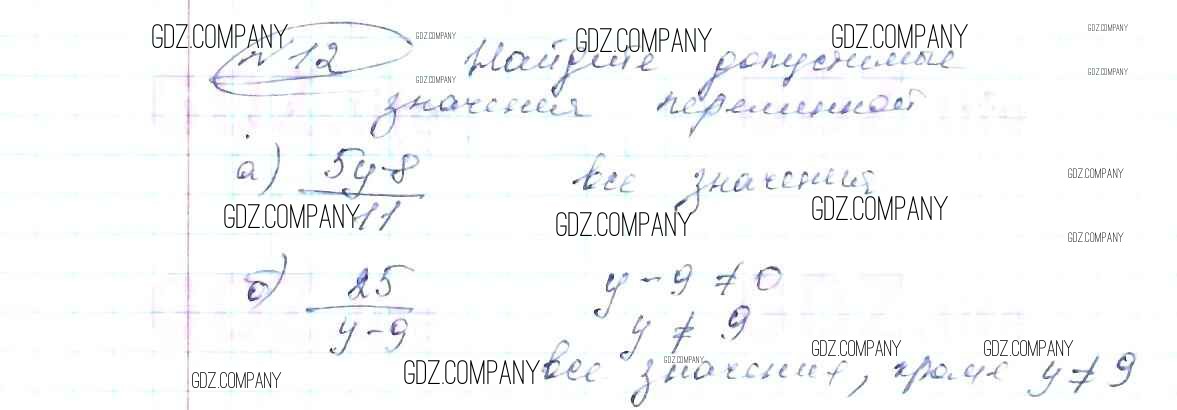 №12 Найдите допустимые
значения переменной
а) 5y-8 / 11 все значения
б) 25 / y-9 y-9≠0
y≠9
все значения, кроме y≠9
GDZ.COMPANY GDZ.COMPANY GDZ.COMPANY GDZ.COMPANY GDZ.COMPANY
GDZ.COMPANY GDZ.COMPANY
GDZ.COMPANY
GDZ.COMPANY GDZ.COMPANY GDZ.COMPANY
GDZ.COMPANY
GDZ.COMPANY GDZ.COMPANY GDZ.COMPANY
GDZ.COMPANY GDZ.COMPANY